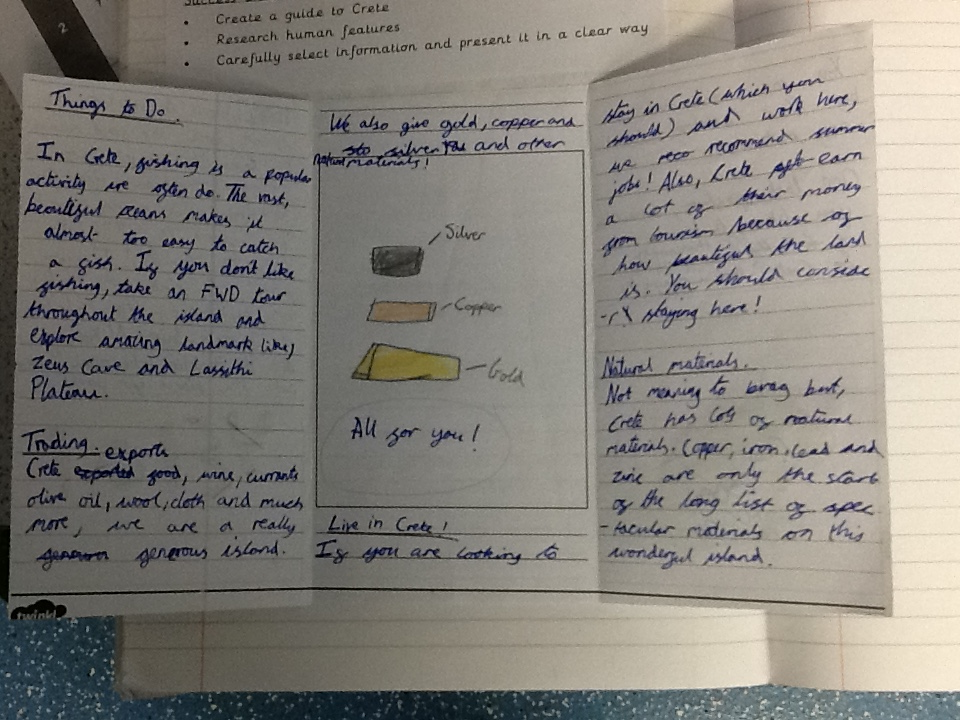 2
Create a guide to Crete
Research human features
Carefully select information and present it in a clear way
Things to Do.
In Crete, fishing is a popular
activity we often do. The vast,
beautiful oceans makes it
almost too easy to catch
a fish. If you don't like
fishing, take an FWD tour
throughout the island and
explore amazing landmark like,
Zeus Cave and Lassithi
Plateau.
Trading.
exports
Crete exported food, wine, currants
olive oil, wool, cloth and much
more, we are a really
generous island.
We also give gold, copper and
sto silver and other
natural materials!
Silver
Copper
Gold
All for you!
Live in Crete!
If you are looking to
stay in Crete (which you
should) and work here,
we reco recommend summer
jobs! Also, Crete get earn
a lot of their money
from tourism because of
how beautiful the land
is. You should conside
-r staying here!
Natural materials.
Not meaning to brag but,
Crete has lots of natural
materials. Copper, iron, lead and
zinc are only the start
of the long list of spec
-tacular materials on this
wonderful island.
twinkl